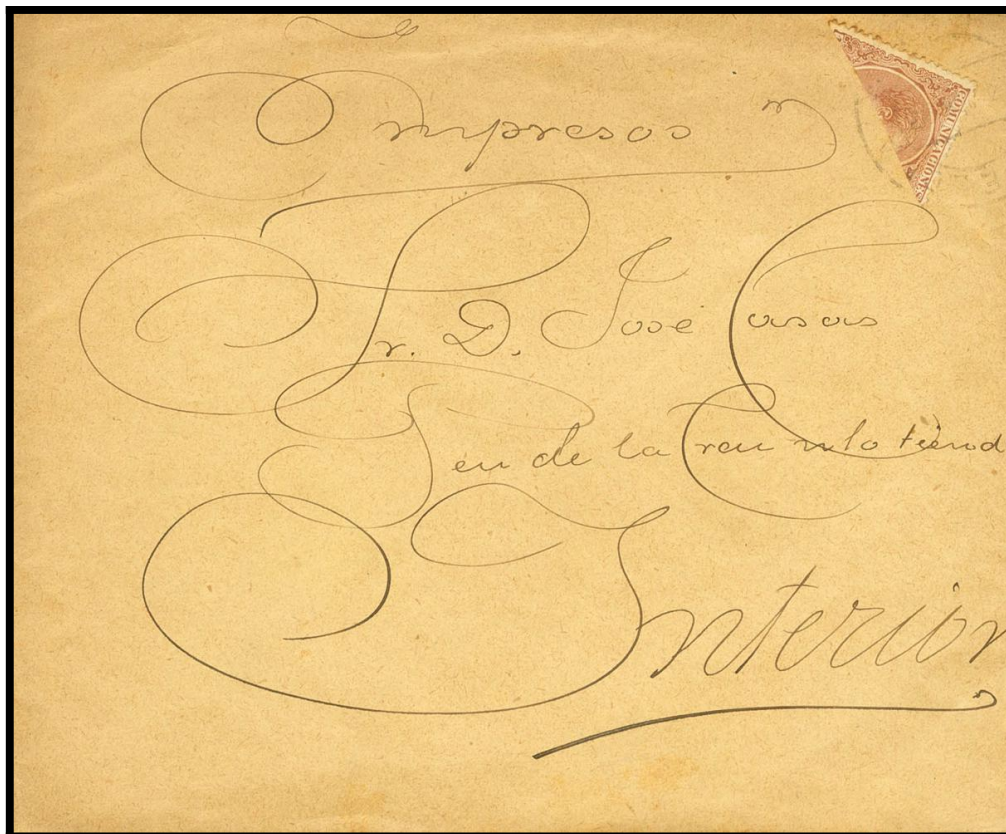 Impresos
COMUNICACIONES
Sr. D. José Casas
en de la tiend
Interior